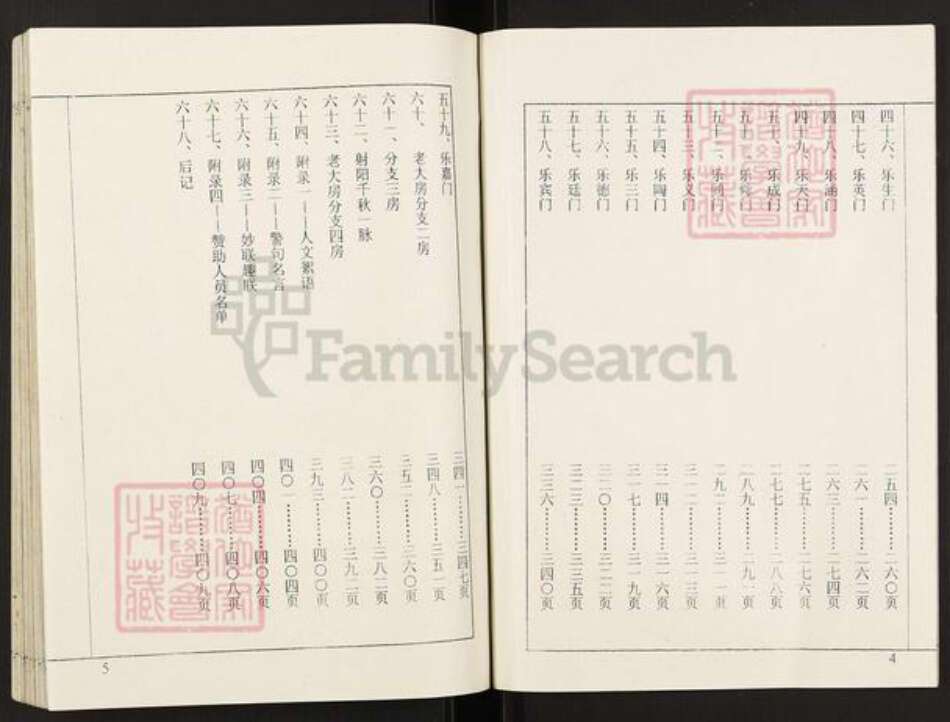 四十六、乐生门 二五四………二六〇页
四十七、乐英门 二六一………二六二页
四十八、乐涵门 二六三………二七四页
四十九、乐天门 二七五………二七六页
五十、乐成门 二七七………二八八页
二八九………二九一页
五十二、乐 门 二九二………
五十三、乐义门
五十四、乐陶门 三一四………三一六页
五十五、乐三门 三一七………三一九页
五十六、乐德门 三二〇………三二二页
五十七、乐廷门 三二三………三三五页
五十八、乐宾门 三三六………三四〇页
4
五十九、乐嘉门 三四一………三四七页
六十、老大房分支二房 三四八………三五一页
六十一、分支三房 三五二………三六〇页
六十二、射阳千秋一脉 三六〇………三八二页
六十三、老大房分支四房 三八二………三九二页
六十四、附录一——人文絮语 三九三………四〇〇页
六十五、附录二——警句名言 四〇一………四〇四页
六十六、附录三——妙联趣联 四〇四………四〇六页
六十七、附录四——赞助人员名单 四〇七………四〇八页
六十八、后记 四〇九………四〇九页
5
FamilySearch